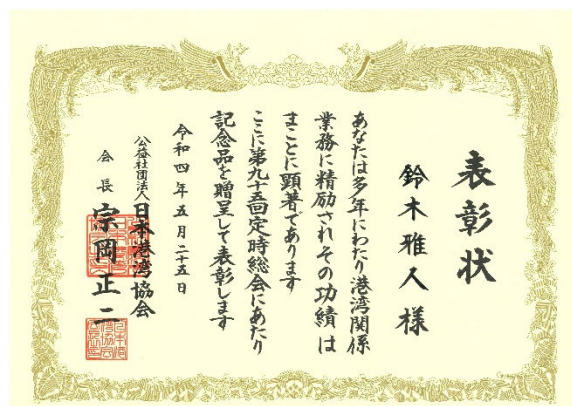 表彰状
鈴木雅人様
あなたは多年にわたり港湾関係
業務に精励されその功績は
まことに顕著であります
ここに第九十五回定時総会にあたり
記念品を贈呈して表彰します
令和四年五月二十五日
公益社団法人日本港湾協会
会長宗岡正二